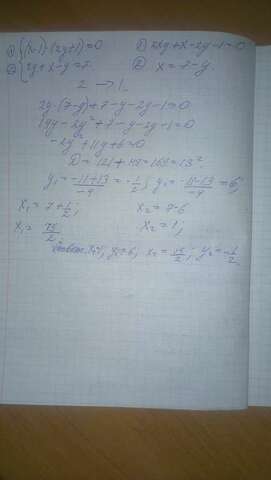 1) {(x-1)·(2y+1)=0    1) 2xy+x-2y-1=0
2) {2y+x-y=7    2) x=7-y
2 → 1
2y·(7-y)+7-y-2y-1=0
14y-2y²+7-y-2y-1=0
-2y²+11y+6=0
D=121+48=169=13²
y₁=(-11+13)/-4=-1/2; y₂=(-11-13)/-4=6;
x₁=7+1/2;    x₂=7-6
x₁=15/2    x₂=1;
y=6, x₂=15/2; y₂=-1/2